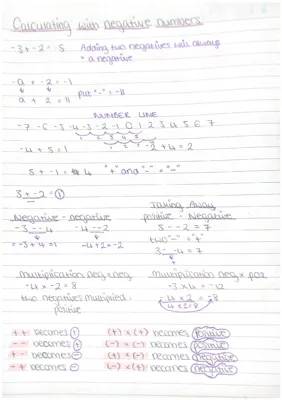 Calculating with negative numbers
-3 + -2 = -5 Adding two negatives will always
= a negative
-9 + -2 = -11
9 + 2 = 11 put "-" = -11
NUMBER LINE
-7 -6 -5 -4 -3 -2 -1 0 1 2 3 4 5 6 7
-4 + 5 = 1
-2 + 4 = 2
5 + -1 = 4 "+" and "-" = "-"
3 + -2 = 1
Negative - negative
Taking Away
positive - Negative
-3 - -4 -4 - -2
= -3 + 4 = 1 -4 + 2 = -2
5 - -2 = 7
two "-" = "+"
3 - -4 = 7
multiplication neg × neg
multiplication neg × pos
-4 × -2 = 8
-3 × 4 = -12
two negatives multiplied =
positive
-4 × 2 = -8
4 × 2 = 8
+ + becomes + (+) × (+) becomes positive
- - becomes + (-) × (-) becomes positive
+ - becomes - (+) × (-) becomes negative
- + becomes - (-) × (+) becomes negative